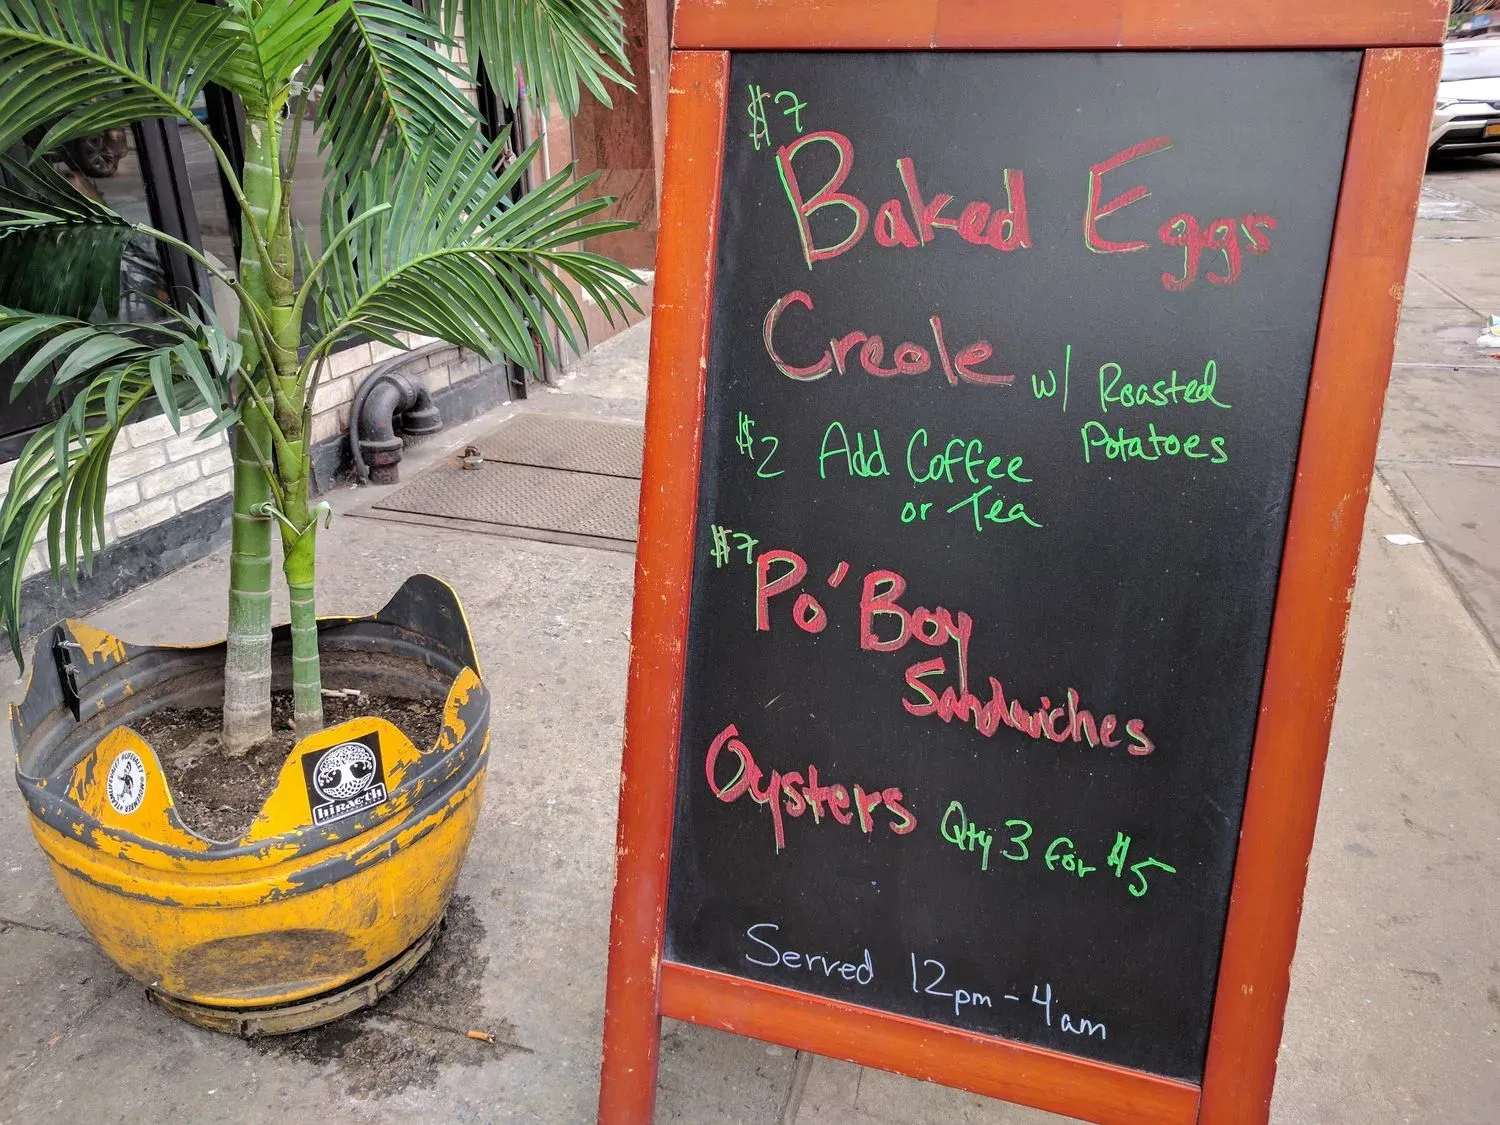 $7
Baked Eggs
Creole w/ Roasted
Potatoes
$2 Add Coffee
or Tea
$7
Po'Boy
Sandwiches
Oysters Qty 3 for $5
Served 12pm - 4am
hiraeth